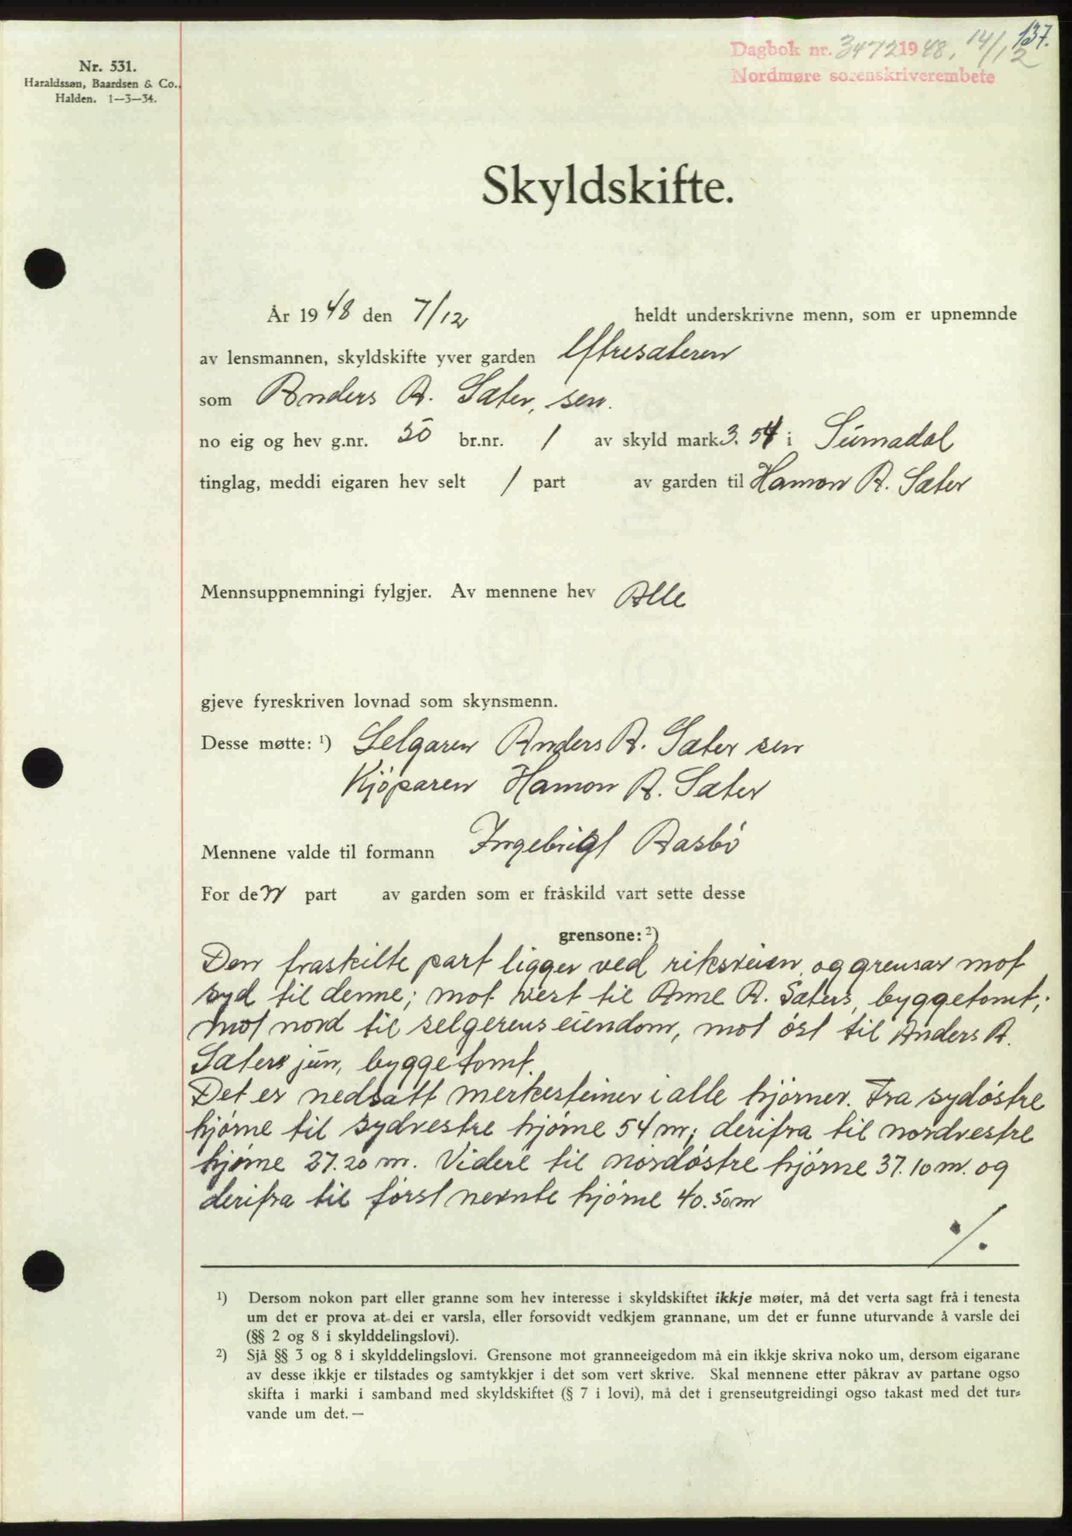 137.
Dagbok nr. 3472 1948, 14/12
Nordmøre sorenskriverembete
Nr. 531.
Haraldssøn, Baardsen & Co.,
Halden. 1—3—34.
Skyldskifte.
År 1948 den 7/12 heldt underskrivne menn, som er upnemnde
av lensmannen, skyldskifte yver garden Øfstesæteren
som Anders A. Sæter, sen.
no eig og hev g.nr. 50 br.nr. 1 av skyld mark 3.54 i Surnadal
tinglag, meddi eigaren hev selt 1 part av garden til Hamon A. Sæter
Mennsuppnemningi fylgjer. Av mennene hev Alle
gjeve fyreskriven lovnad som skynsmenn.
Desse møtte: ¹) Selgaren Anders A. Sæter sen
Kjøparen Hamon A. Sæter
Mennene valde til formann Ingebrigt Aasbø
For den part av garden som er fråskild vart sette desse
grensone: ²)
Den fraskilte part ligger ved riksveien, og grensar mot
syd til denne; mot vest til Arne A. Sæters, byggetomt;
mot nord til selgerens eiendom, mot øst til Anders A.
Sæters jun, byggetomt.
Det er nedsatt merkesteiner i alle hjørner. Fra sydøstre
hjørne til sydvestre hjørne 54 m; derifra til nordvestre
hjørne 27.20 m. Videre til nordøstre hjørne 37.10 m. og
derifra til først nevnte hjørne 40.50 m
./.
¹) Dersom nokon part eller granne som hev interesse i skyldskiftet ikkje møter, må det verta sagt frå i tenesta
um det er prova at dei er varsla, eller forsovidt vedkjem grannane, um det er funne uturvande å varsle dei
(§§ 2 og 8 i skylddelingslovi).
²) Sjå §§ 3 og 8 i skylddelingslovi. Grensone mot granneeigedom må ein ikkje skriva noko um, dersom eigarane
av desse ikkje er tilstades og samtykkjer i det som vert skrive. Skal mennene etter påkrav av partane ogso
skifta i marki i samband med skyldskiftet (§ 7 i lovi), må det i grenseutgreidingi ogso takast med det tur-
vande um det. —